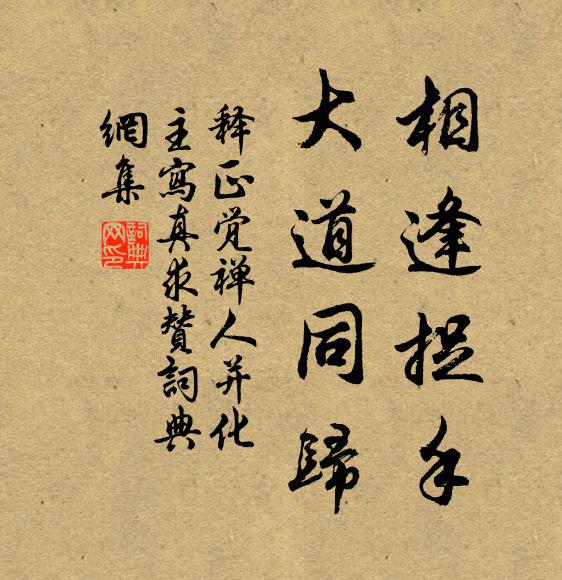 相逢捉手
大道同歸
释正觉禅人并化
主寫真求贊詞典
網集
詞典
网印